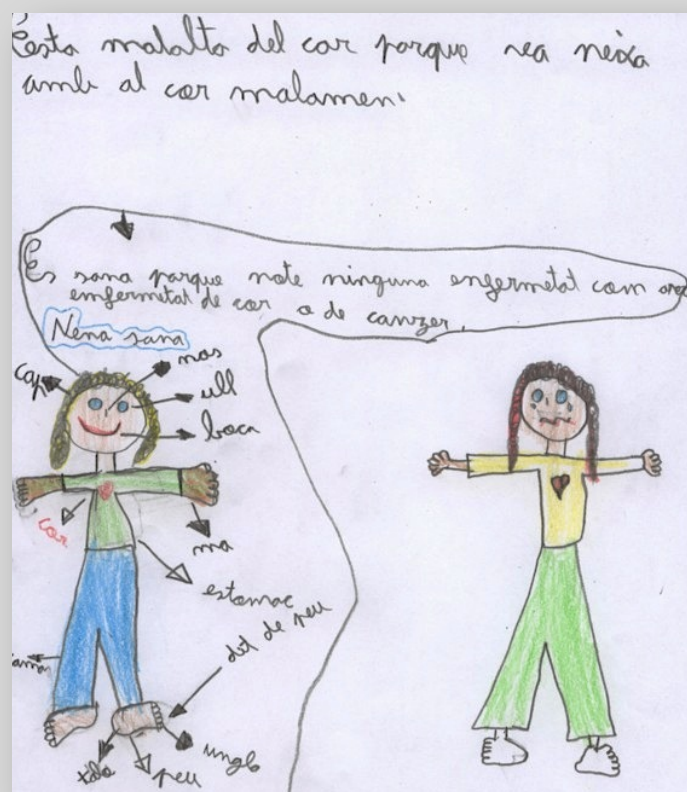 Esta malalta del cor porque va neixa
amb al cor malamen
Es sana parque note ninguna enfermetat com ara
enfermitat de cor o de canzer.
Nena sana
cap
nas
ull
boca
cor
ma
estomac
dit de peu
ungla
peu